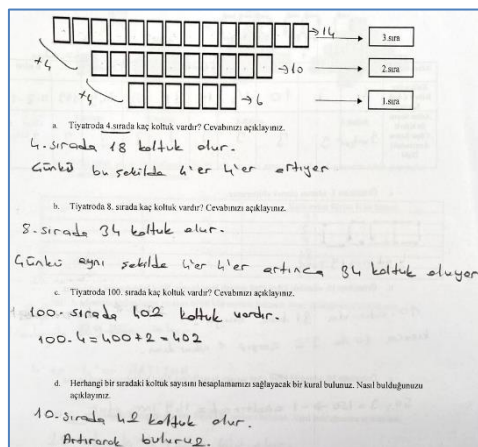 →14 3.sıra
+4 →10 2.sıra
+4 →6 1.sıra
a. Tiyatroda 4.sırada kaç koltuk vardır? Cevabınızı açıklayınız.
4. sırada 18 koltuk olur.
Günkü bu şekilde 4'er 4'er artıyor
b. Tiyatroda 8. sırada kaç koltuk vardır? Cevabınızı açıklayınız.
8. sırada 34 koltuk olur.
Günkü aynı şekilde 4'er 4'er artınca 34 koltuk oluyor
c. Tiyatroda 100. sırada kaç koltuk vardır? Cevabınızı açıklayınız.
100. sırada 402 koltuk vardır.
100.4=400+2=402
d. Herhangi bir sıradaki koltuk sayısını hesaplamamızı sağlayacak bir kural bulunuz. Nasıl bulduğunuzu
açıklayınız.
10. sırada 42 koltuk olur.
Artırarak buluruz.